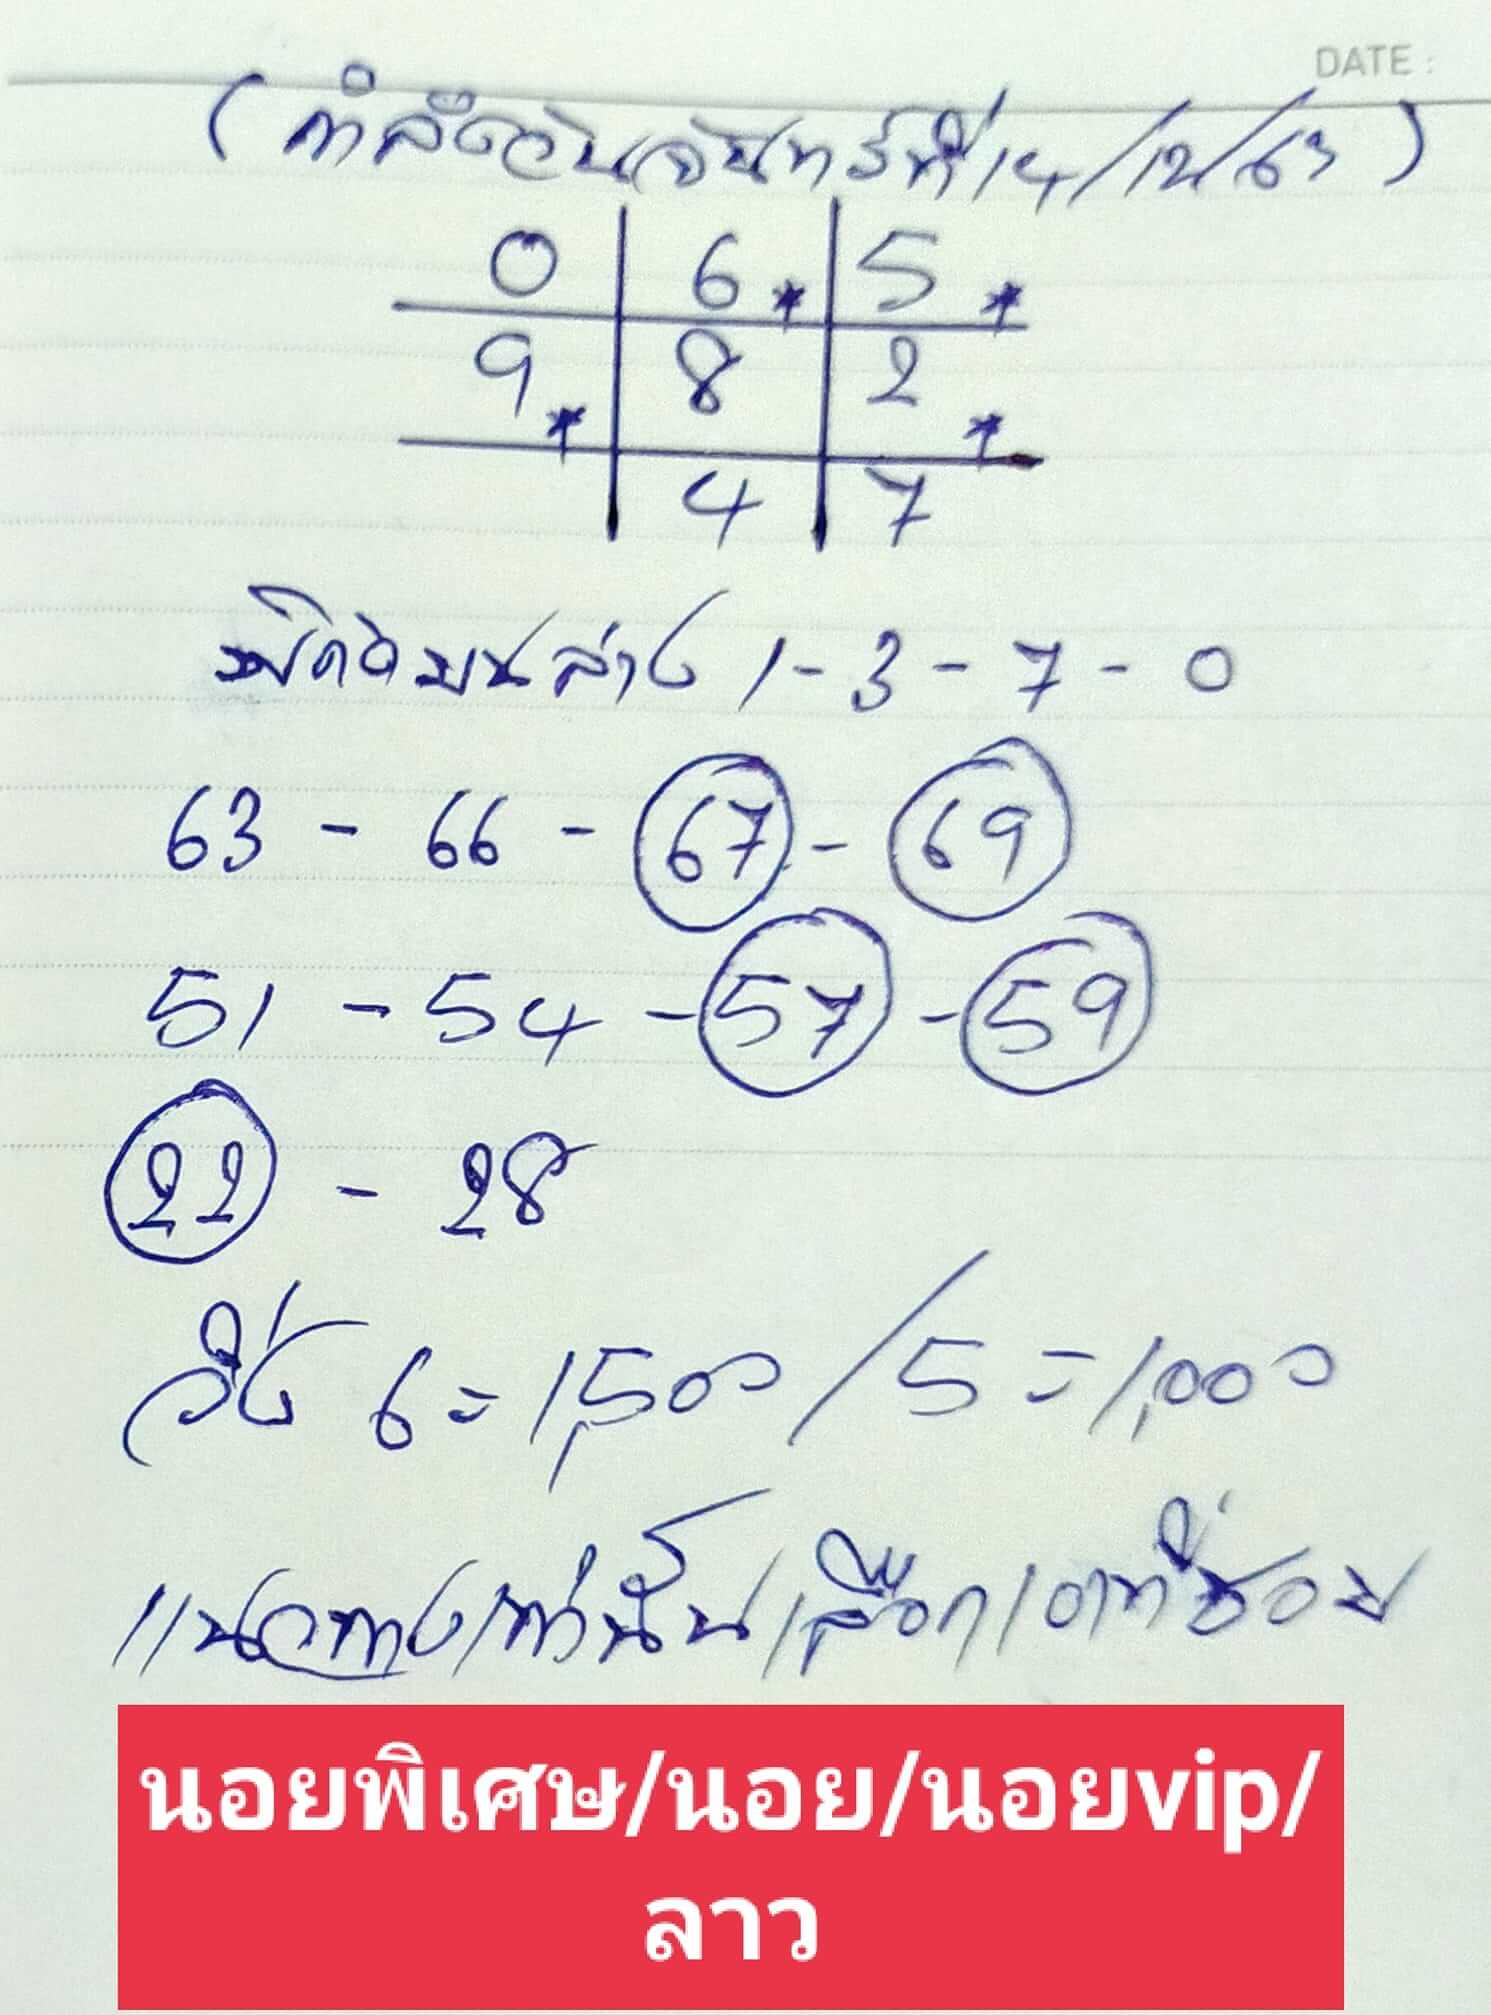 DATE :
(กำลังวันจันทร์ที่ 14/12/63)
0 6 * 5 *
9 * 8 2 *
4 7
บนล่าง 1 - 3 - 7 - 0
63 - 66 - 67 - 69
51 - 54 - 57 - 59
22 - 28
วิ่ง 6 = 1,500 / 5 = 1,000
แนวทางเท่านั้นเลือกเอาที่ชอบ
นอยพิเศษ/นอย/นอยvip/
ลาว